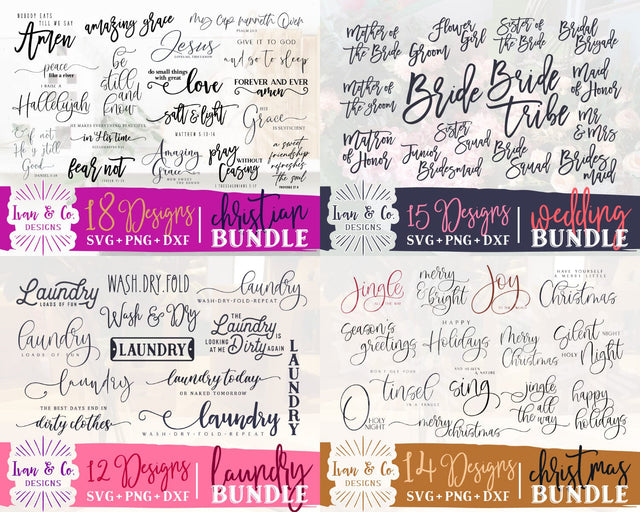 NOBODY EATS
TILL WE SAY
Amen
amazing grace
my cup runneth over
PSALM 23:5
peace
like a river
be
still
and
know
Jesus
GIVE IT TO GOD
and go to sleep
I RAISE A
Hallelujah
do small things
with great
love
FOREVER AND EVER
amen
HE MAKES EVERYTHING BEAUTIFUL
in His time
salt & light
MATTHEW 5:13-16
HIS
Grace
IS SUFFICIENT
& if not
He is still
Good
DANIEL 3:18
fear not
Amazing
Grace
HOW SWEET
THE SOUND
pray
WITHOUT
CEASING
1 THESSALONIANS 5:17
a sweet
friendship
refreshes
the soul
PROVERBS 27:9
Ivan & Co.
DESIGNS
18 Designs
SVG + PNG + DXF
christian
BUNDLE
Mother of
the Bride
Flower
Girl
Sister of
the Bride
Bridal
Brigade
Groom
Mother of
the groom
Bride
Bride
Tribe
Maid
of Honor
Mr
& Mrs
Matron
of Honor
Sister
Squad
Junior
Bridesmaid
Bride
Squad
Brides
maid
Ivan & Co.
DESIGNS
15 Designs
SVG + PNG + DXF
wedding
BUNDLE
Laundry
LOADS OF FUN
WASH.DRY.FOLD
Wash & Dry
laundry
WASH-DRY-FOLD-REPEAT
laundry
LOADS OF FUN
LAUNDRY
The
Laundry
IS
LOOKING
AT ME
Dirty
again
LAUNDRY
laundry
laundry today
OR NAKED TOMORROW
THE BEST DAYS END IN
dirty clothes
laundry
WASH-DRY-FOLD-REPEAT
Ivan & Co.
DESIGNS
12 Designs
SVG + PNG + DXF
laundry
BUNDLE
Jingle
ALL THE WAY
merry
& bright
Joy
TO THE WORLD
HAVE YOURSELF
A MERRY LITTLE
Christmas
Season's
greetings
HAPPY
Holidays
Merry
Christmas
Silent
NIGHT
HOLY
Night
DON'T GET YOUR
tinsel
IN A TANGLE
AND HEAVEN
& NATURE
sing
jingle
all the
way
happy
holidays
O
HOLY
NIGHT
merry
Christmas
Ivan & Co.
DESIGNS
14 Designs
SVG + PNG + DXF
christmas
BUNDLE